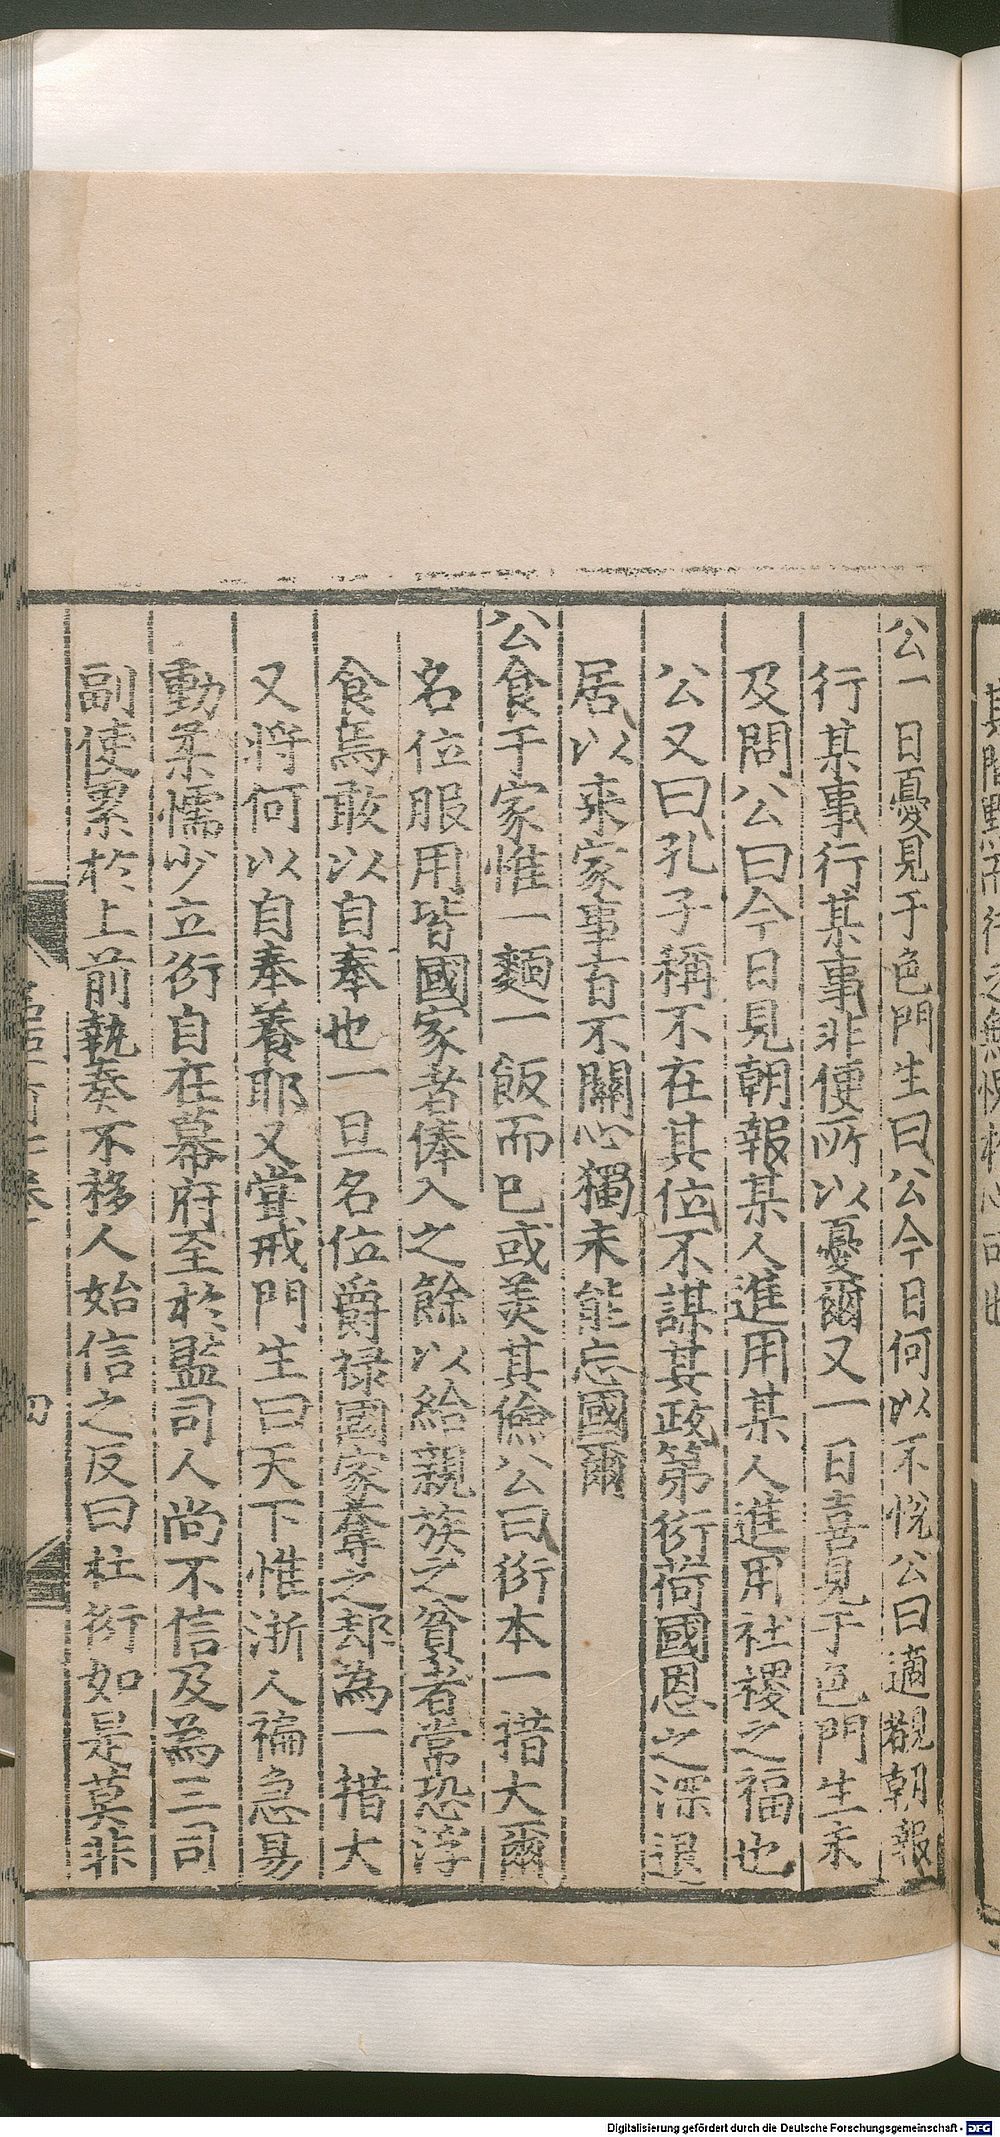 公一日憂見于色門生曰公今日何以不悅公曰適觀朝報
行某事行某事非便所以憂爾又一日喜見于色門生末
及問公曰今日見朝報某人進用某人進用社稷之福也
公又曰孔子稱不在其位不謀其政第衍荷國恩之深退
居以来家事百不關心獨未能忘國爾
公食于家惟一麵一飯而已或美其儉公曰衍本一措大爾
名位服用皆國家者俸入之餘以給親族之貧者常恐浮
食焉敢以自奉也一旦名位爵禄國家奪之却為一措大
又将何以自奉養耶又嘗戒門生曰天下惟浙人褊急易
動柔懦少立衍自在幕府至於監司人尚不信及為三司
副使累於上前執奏不移人始信之反曰杜衍如是莫非
四
Digitalisierung gefördert durch die Deutsche Forschungsgemeinschaft - DFG